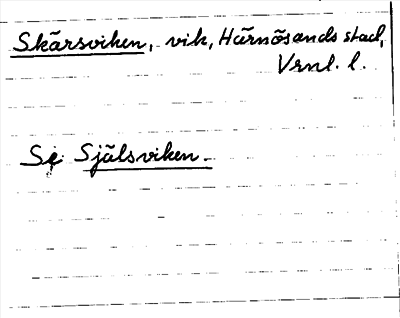 Skärsviken, vik, Härnösands stad,
Vrnl. l.
Se Själsviken.